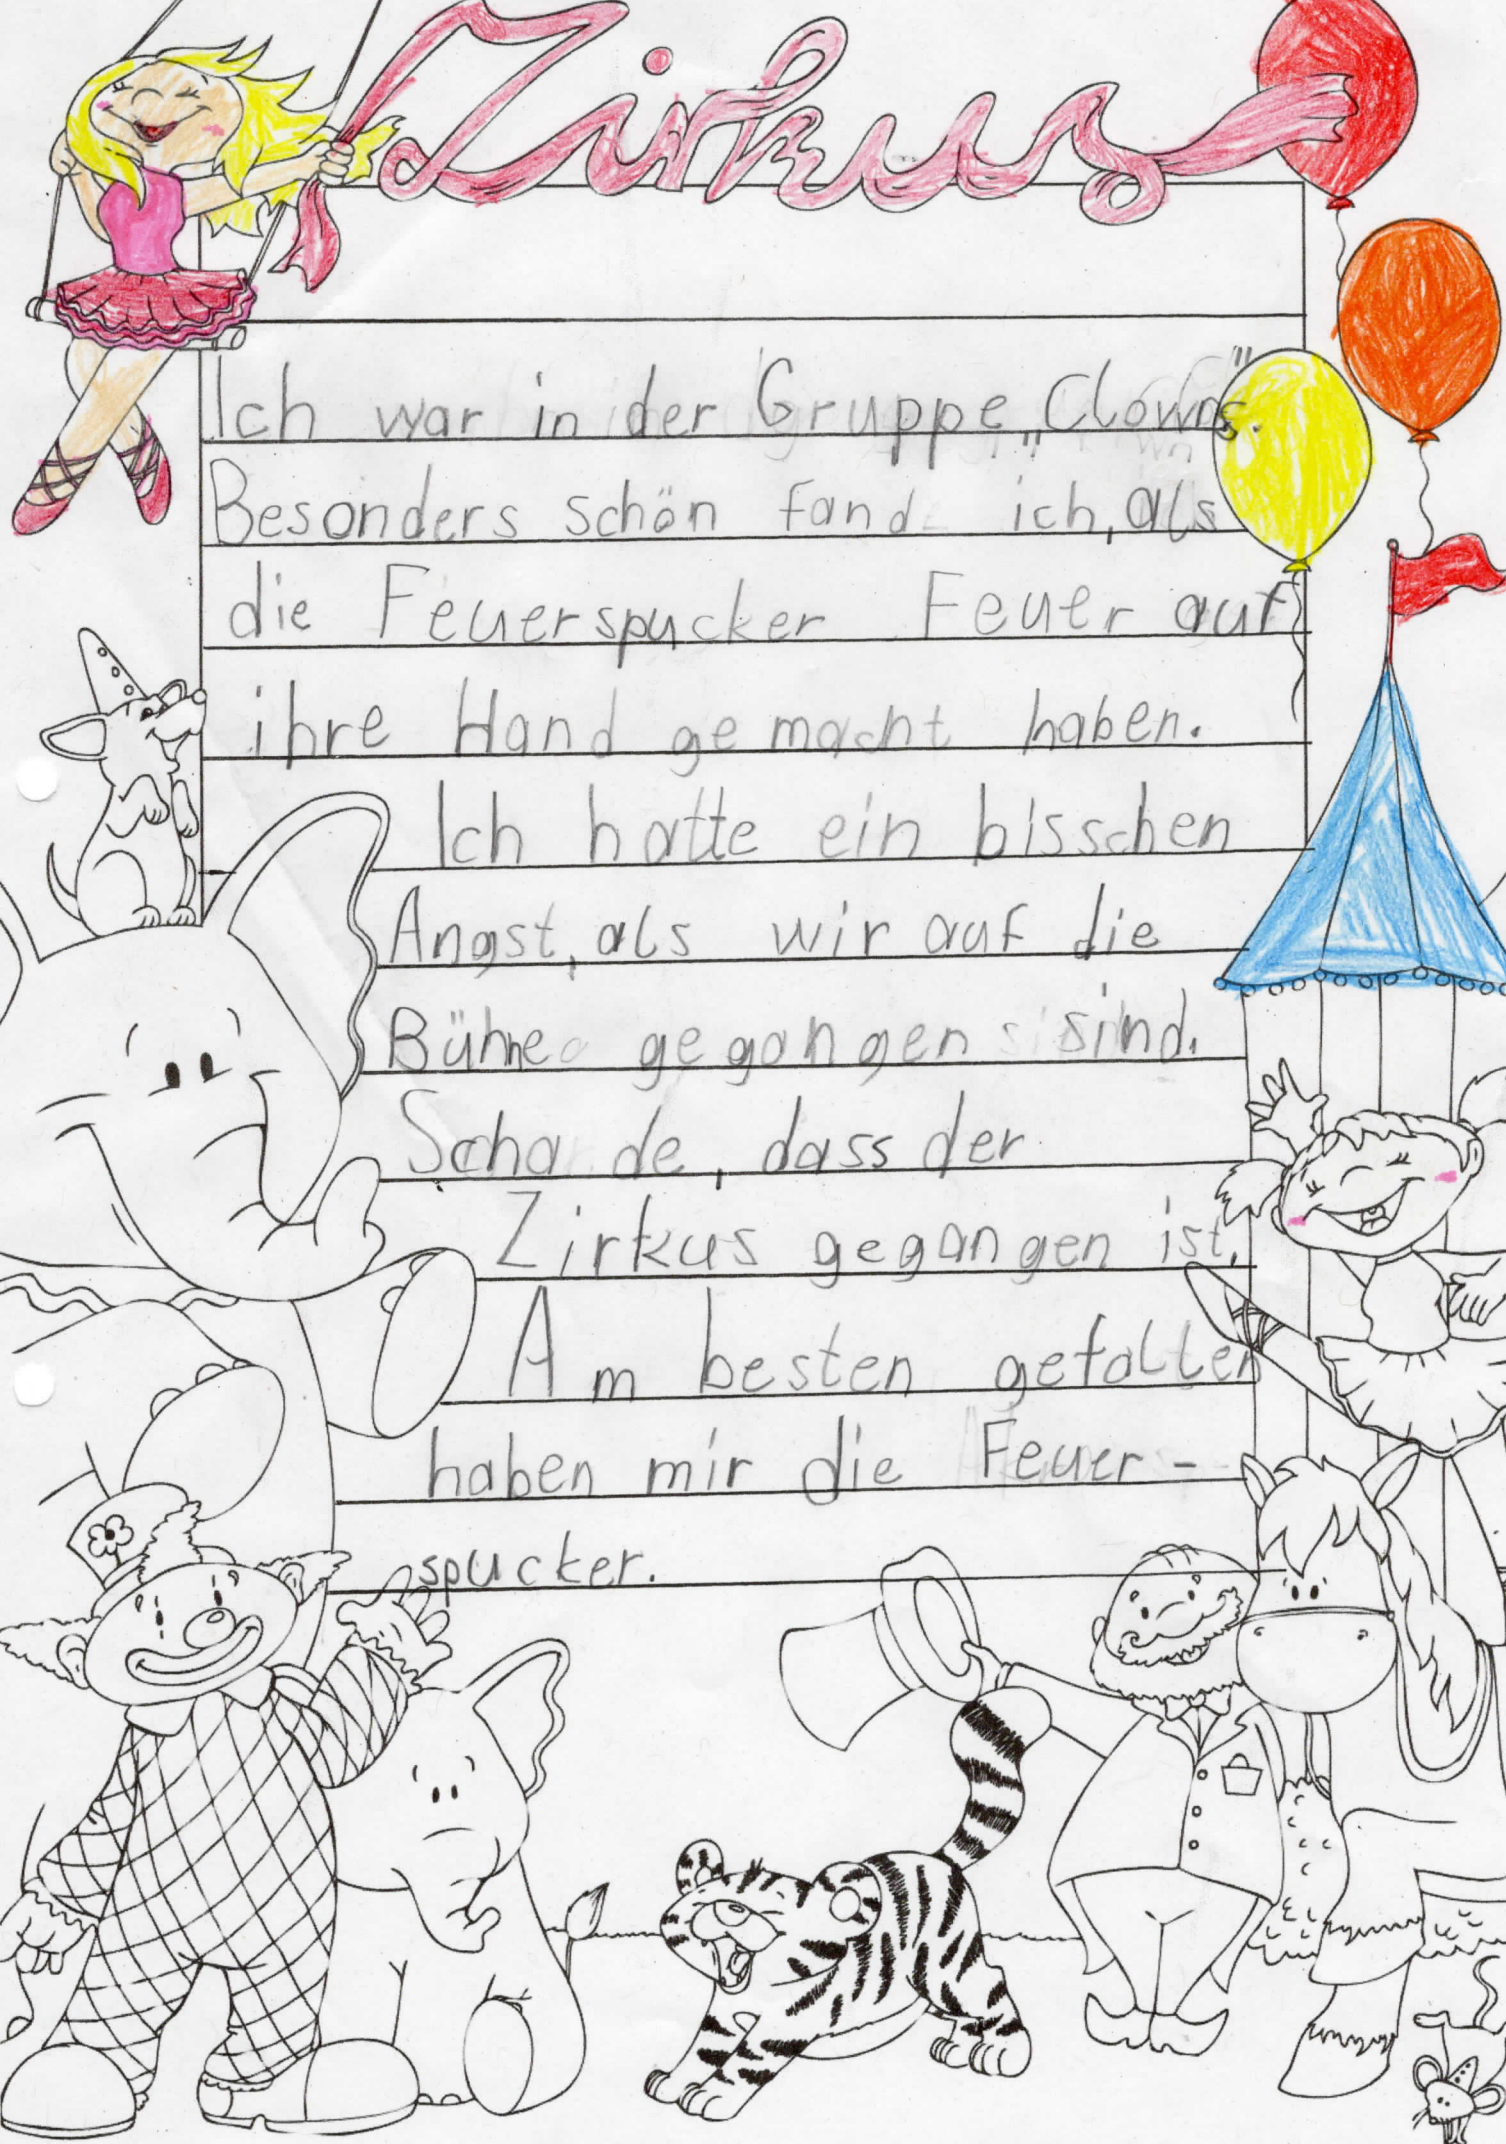 Zirkus
Ich war in der Gruppe „Clowns".
Besonders schön fand ich, als
die Feuerspucker Feuer auf
ihre Hand gemacht haben.
Ich hatte ein bisschen
Angst, als wir auf die
Bühne gegangen sind.
Schade, dass der
Zirkus gegangen ist.
Am besten gefallen
haben mir die Feuer-
spucker.